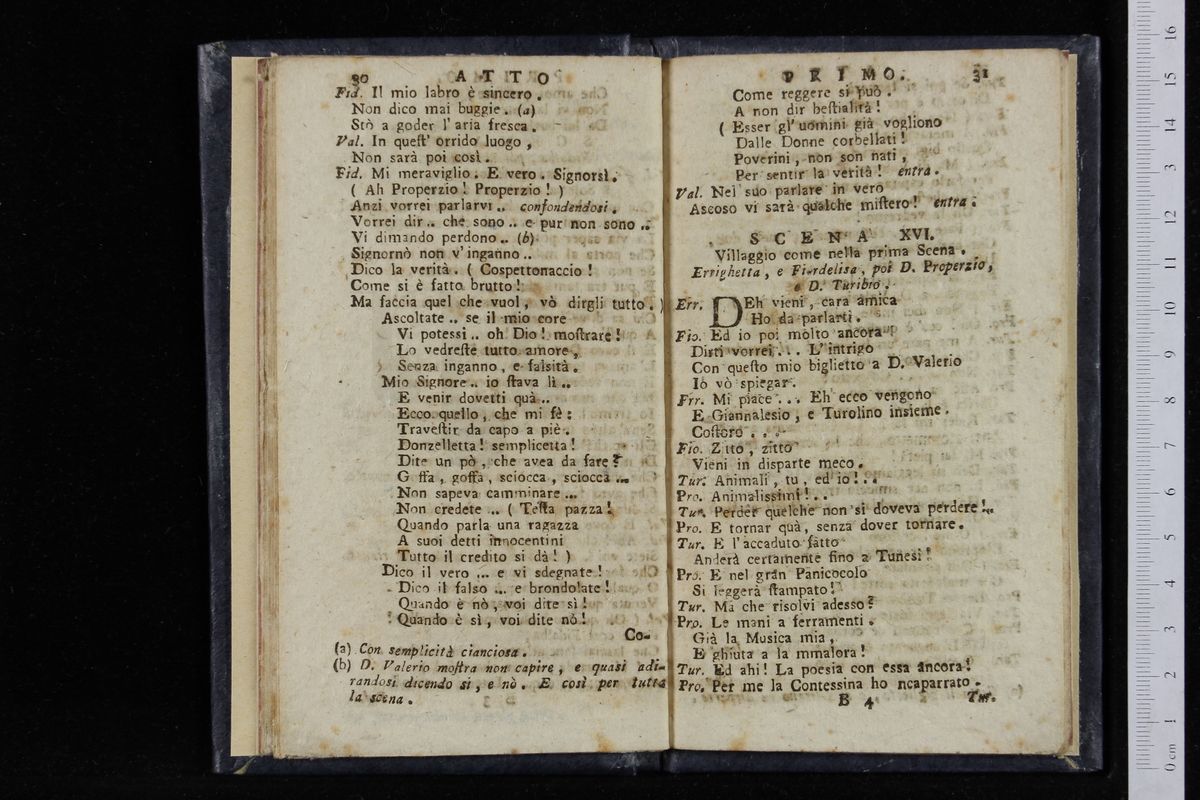 30 ATTO
Fid. Il mio labro è sincero.
Non dico mai buggie. (a)
Stò a goder l'aria fresca.
Val. In quest' orrido luogo,
Non sarà poi così.
Fid. Mi meraviglio. E vero. Signorsì.
( Ah Properzio! Properzio! )
Anzi vorrei parlarvi .. confondendosi.
Vorrei dir .. che sono .. e pur non sono ..
Vi dimando perdono .. (b)
Signornò non v'inganno ..
Dico la verità. ( Cospettonaccio!
Come si è fatto brutto!
Ma faccia quel che vuol, vò dirgli tutto. )
Ascoltate .. se il mio core
Vi potessi .. oh Dio! mostrare!
Lo vedreste tutto amore,
Senza inganno, e falsità.
Mio Signore .. io stava lì ..
E venir dovetti quà ..
Ecco quello, che mi fè:
Travestir da capo a piè.
Donzelletta! semplicetta!
Dite un pò, che avea da fare?
G ffa, goffa, sciocca, sciocca ...
Non sapeva camminare ...
Non credete .. ( Testa pazza!
Quando parla una ragazza
A suoi detti innocentini
Tutto il credito si dà! )
Dico il vero ... e vi sdegnate!
Dico il falso ... e brondolate!
Quando è nò, voi dite sì!
Quando è sì, voi dite nò!
Co-
(a) Con semplicità cianciosa.
(b) D. Valerio mostra non capire, e quasi adi-
randosi dicendo si, e nò. E così per tutta
la scena.
PRIMO. 31
Come reggere si può.
A non dir bestialità!
( Esser gl' uomini già vogliono
Dalle Donne corbellati!
Poverini, non son nati,
Per sentir la verità! entra.
Val. Nel suo parlare in vero
Ascoso vi sarà qualche mistero! entra.
SCENA XVI.
Villaggio come nella prima Scena.
Errighetta, e Fiordelisa, poi D. Properzio,
e D. Turibio.
Err. DEh vieni, cara amica
Ho da parlarti.
Fio. Ed io poi molto ancora
Dirti vorrei . . . L'intrigo
Con questo mio biglietto a D. Valerio
Iò vò spiegar.
Frr. Mi piace . . . Eh ecco vengono
E Giannalesio, e Turolino insieme.
Costoro . . .
Fio. Zitto, zitto
Vieni in disparte meco.
Tur. Animali, tu, ed io! . .
Pro. Animalissimi! . .
Tur. Perder quelche non si doveva perdere! ..
Pro. E tornar quà, senza dover tornare.
Tur. E l'accaduto fatto
Anderà certamente fino a Tunesi!
Pro. E nel gràn Panicocolo
Si leggerà stampato!
Tur. Ma che risolvi adesso?
Pro. Le mani a ferramenti.
Già la Musica mia,
E ghiuta a la mmalora!
Tur. Ed ahi! La poesia con essa ancora!
Pro. Per me la Contessina ho ncaparrato.
B 4 Tur.
16
15
14
13
12
11
10
9
8
7
6
5
4
3
2
1
0 cm